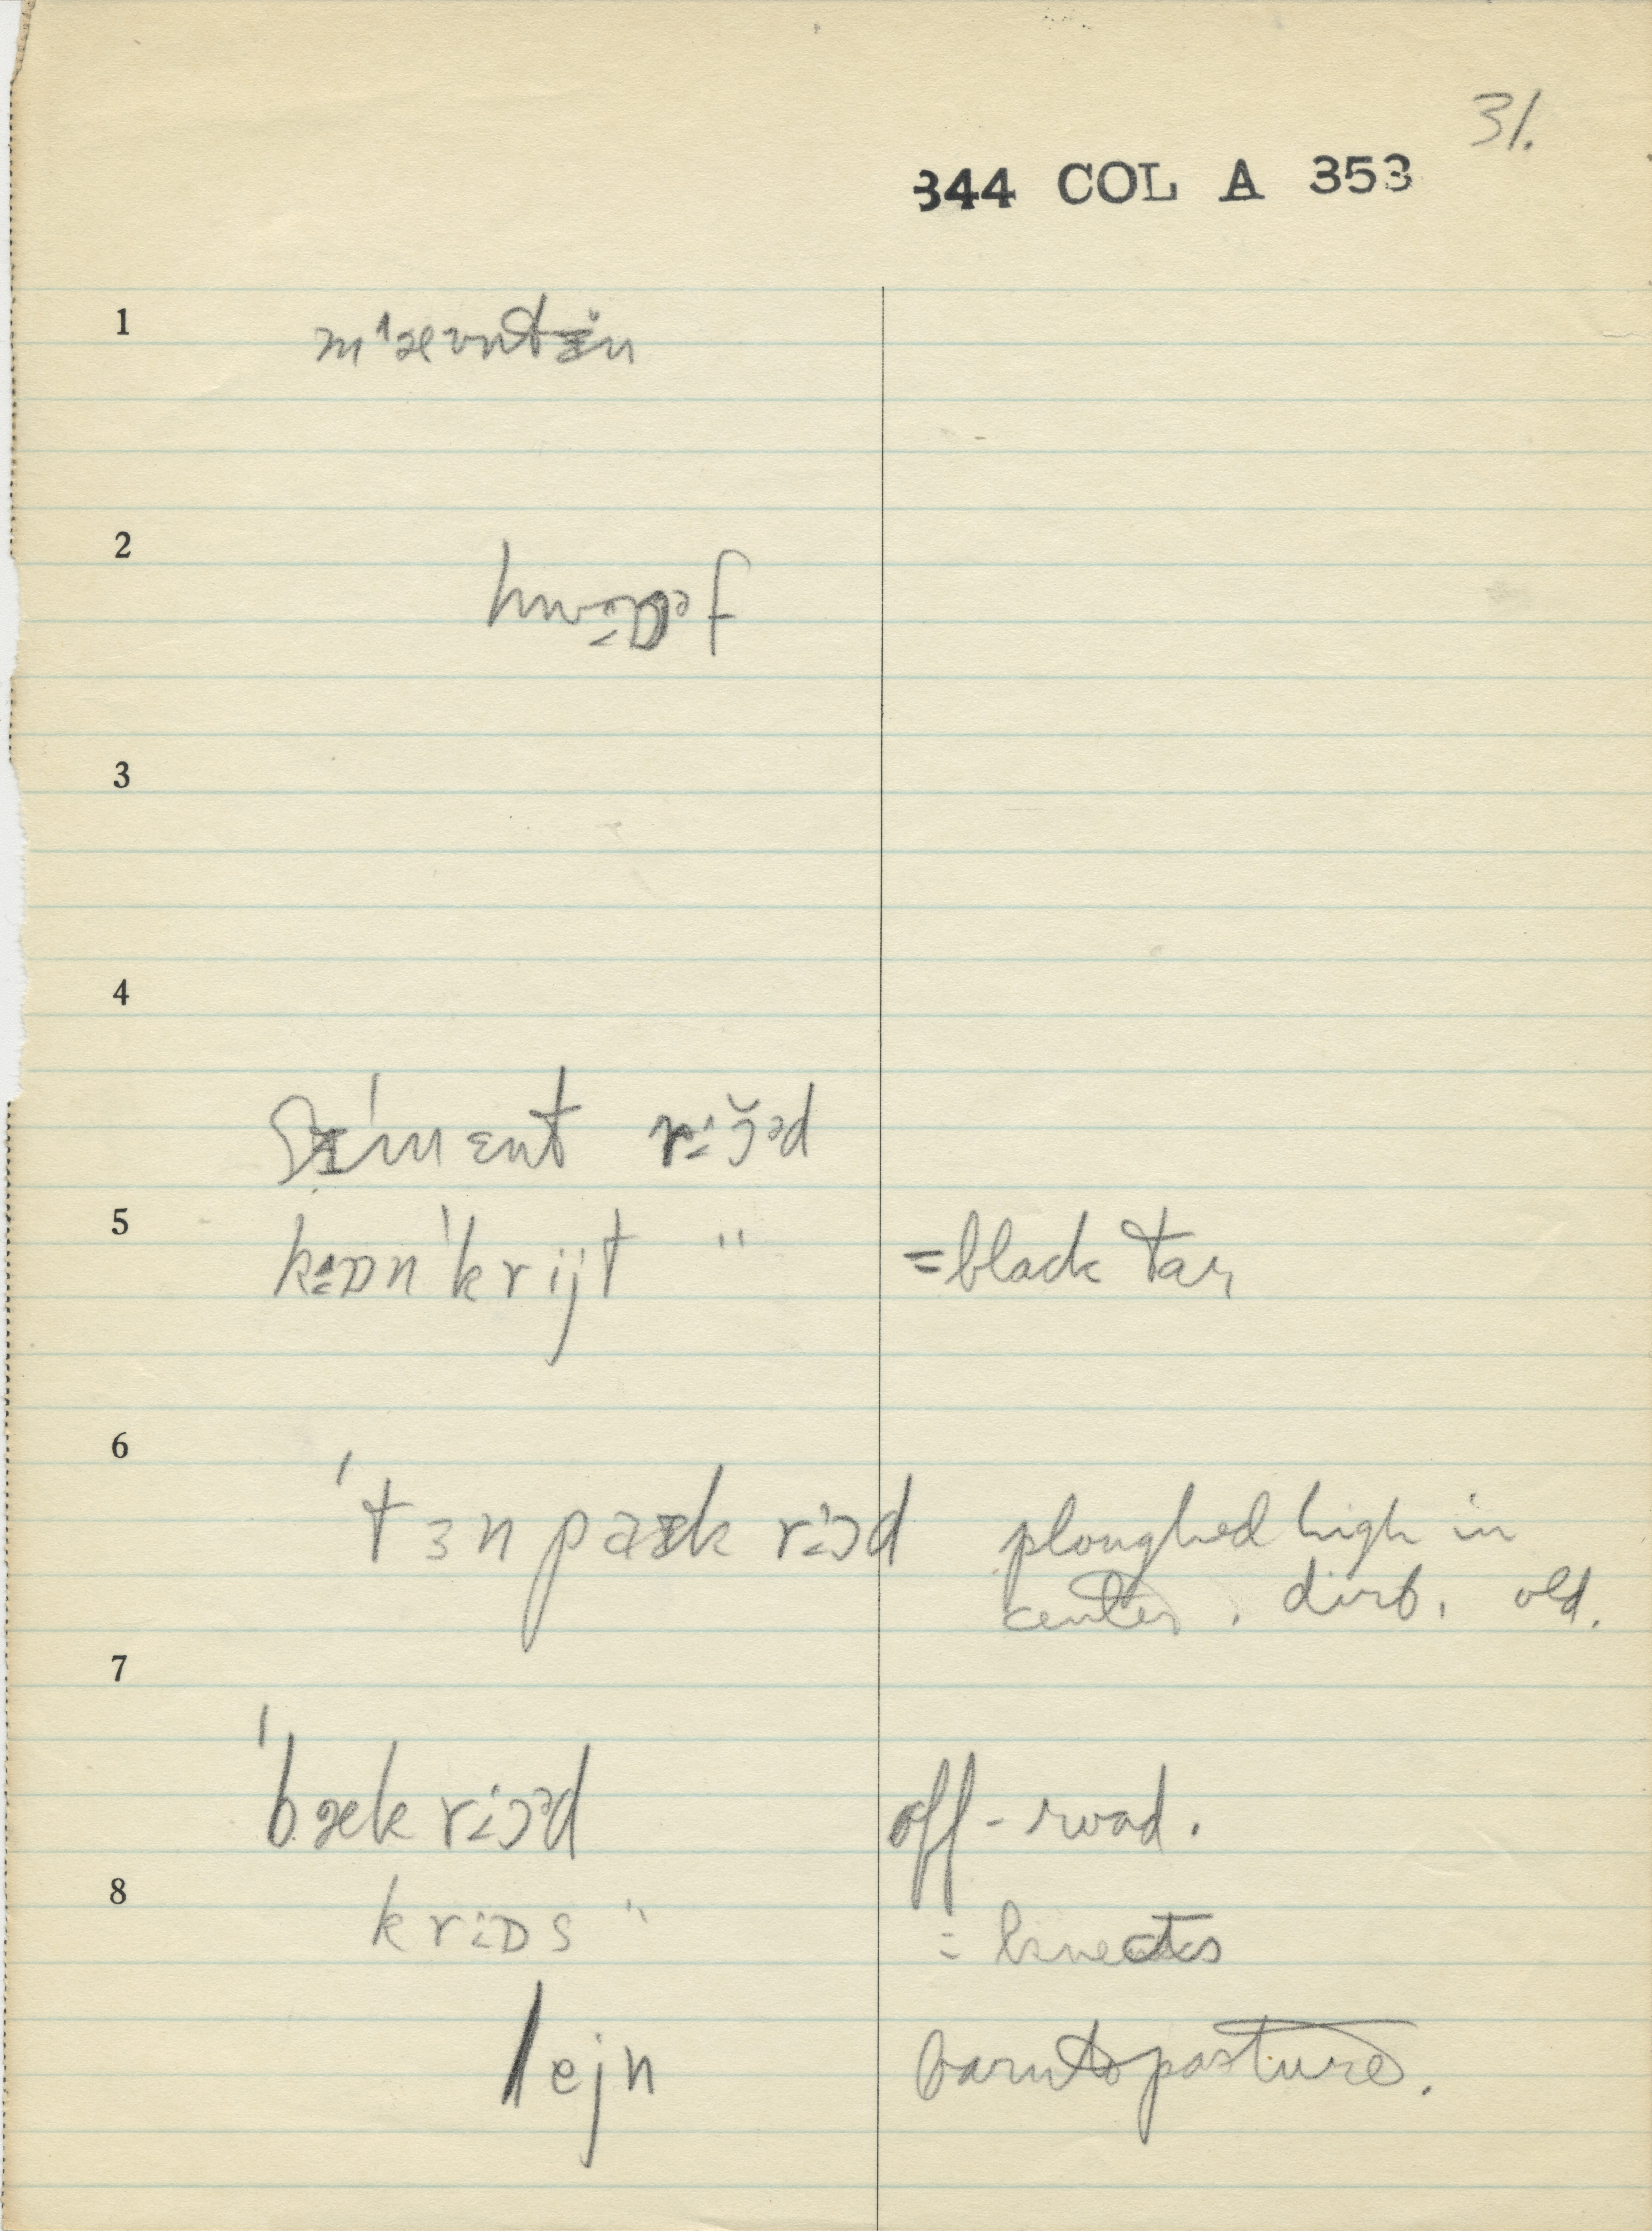 31.
344 COL A 353
1 m'æʊntɪn
2
3
4
sɪ'mɛnt
5 kɒn'krijt " = black tar
6
'tɜnpaɪk rɔd ploughed high in
center. dirt. old.
7
'bækrɔəd off-road.
8 krɒs "
lejn barn to pasture.